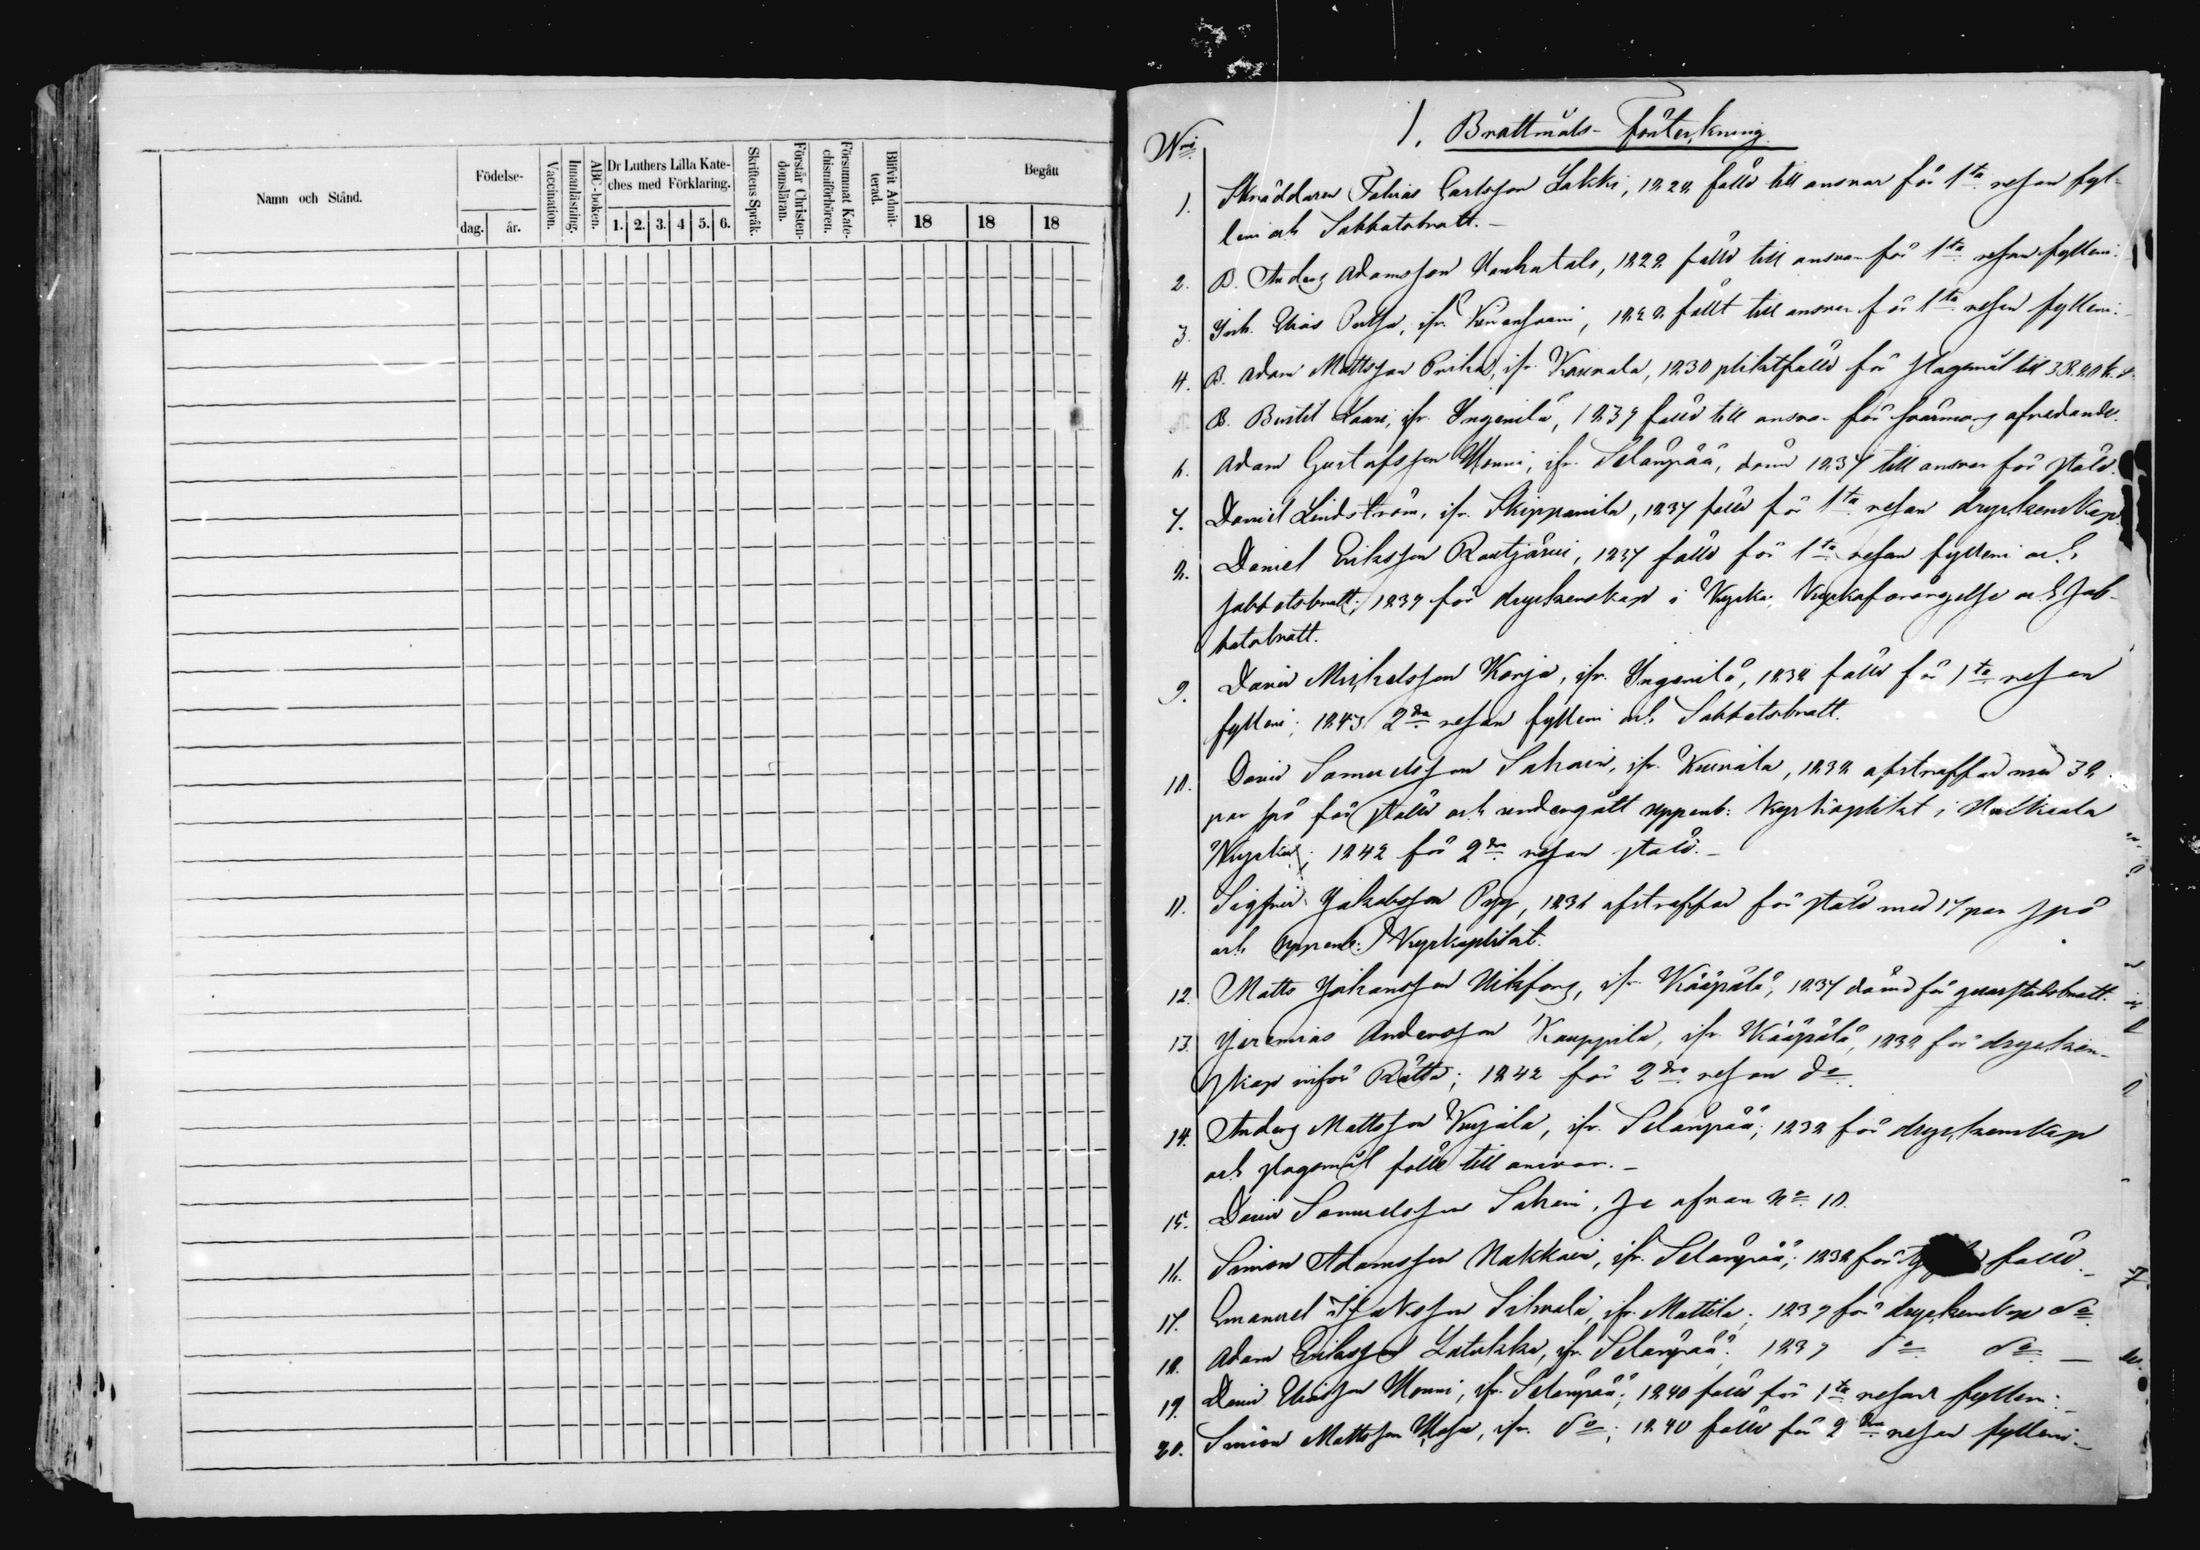 Namn och Stånd.
Födelse-
dag.
år.
Vaccination.
Innanläsning.
ABC-boken.
Dr Luthers Lilla Kate-
ches med Förklaring.
1. 2. 3. 4 5. 6.
Skriftens Språk.
Förstår Christen-
domsläran.
Försummat Kate-
chismiförhören.
Blifvit Admit-
terad.
Begått
18 18 18
Nris
1. Brottmåls-Förteckning.
1. Skräddaren Tobias Carlsson Lakki, 1828 fälld till ansvar för 1sta resan fyl-
leri och Sabbatsbrott.
2. B. Anders Adamsson, 1828 fälld till ansvar för 1sta resan fylleri.
3. Joh. Elias, ifr., 1828 fälld till ansvar för 1sta resan fylleri.
4. B. Adam Mattsson, ifr. Kouvala, 1830 pliktfälld för slagsmål till 3 R. 20 k. s.
B. Bertil Lauri, ifr. Yngerilä, 1839 fälld till ansvar för afredande.
6. Adam Gustafsson Monni, ifr. Selänpää, dömd 1837 till ansvar för stöld.
7. Daniel Lindström, ifr. Skippanila, 1837 fälld för 1sta resan dryckenskap.
8. Daniel Eriksson Rautjärvi, 1837 fälld för 1sta resan fylleri och
sabbatsbrott; 1839 för dryckenskap i Kyrka, Kyrkoförargelse och Sab-
batsbrott.
9. David Michelsson Korja, ifr. Yngerilä, 1838 fälld för 1sta resan
fylleri; 1843 2dra resan fylleri och Sabbatsbrott.
10. David Samuelsson Sahari, ifr. Kuivala, 1838 afstraffad med 38
par spö för stöld och undergått uppenb: Kyrkoplikt i Valkeala
Kyrka; 1842 för 2dra resan stöld.
11. Sigfrid Jakobsson Pyy, 1836 afstraffad för stöld med 17 par spö
och uppenb: Kyrkoplikt.
12. Matts Johansson Vikfors, ifr. Kääpälä, 1837 dömd för qvarstadsbrott.
13. Jeremias Andersson Kauppila, ifr. Kääpälä, 1838 för drycken-
skap inför Rätta; 1842 för 2dra resan do
14. Anders Mattsson Kujala, ifr. Selänpää; 1838 för dryckenskap
och slagsmål fälld till ansvar.
15. David Samuelsson Sahari, se ofvan No 10.
16. Simon Adamsson Nakkari, ifr. Selänpää; 1838 för fälld
17. Emanuel Isaksson, ifr. Mattila; 1839 för dryckenskap do
18. Adam Eriksson Latukka, ifr. Selänpää; 1839 do do
19. David Eliasson Monni, ifr. Selänpää; 1840 fälld för 1sta resan fylleri.
20. Simon Mattsson, ifr. do; 1840 fälld för 2dra resan fylleri